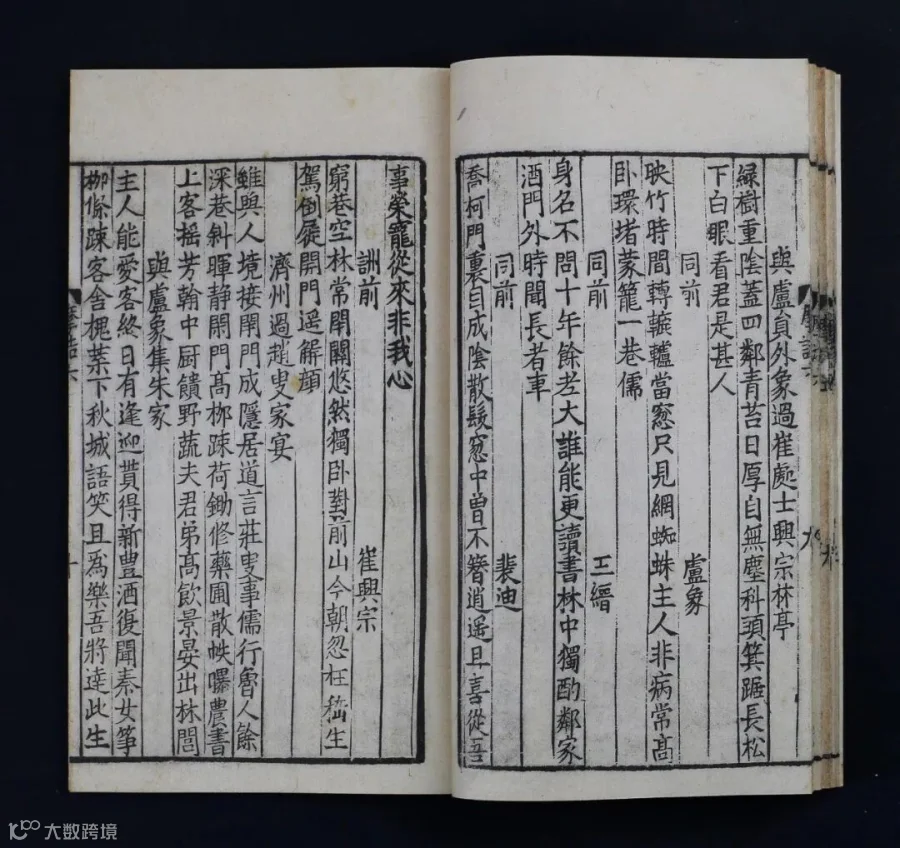 與盧員外象過崔處士興宗林亭
綠樹重陰蓋四鄰青苔日厚自無塵科頭箕踞長松
下白眼看君是甚人
同前 盧象
映竹時聞轉轆轤當窓只見網蜘蛛主人非病常高
卧環堵蒙籠一巷儒
同前 王縉
身名不問十年餘老大誰能更讀書林中獨酌鄰家
酒門外時聞長者車
同前 裴迪
喬柯門裏自成陰散髮窓中曾不簪逍遥且喜從吾
事榮寵從來非我心
詶前 崔興宗
窮巷空林常閉關悠然獨卧對前山今朝忽枉嵇生
駕倒屣開門遥解顔
濟州過趙叟家宴
雖與人境接閉門成隱居道言莊叟事儒行魯人餘
深巷斜暉静閑門高柳踈荷鋤修藥圃散帙曝農書
上客摇芳翰中厨饋野蔬夫君弟高飲景晏出林閭
與盧象集朱家
主人能愛客終日有逢迎貰得新豊酒復聞秦女筝
柳條踈客舍槐葉下秋城語笑且爲樂吾將達此生
大数跨境